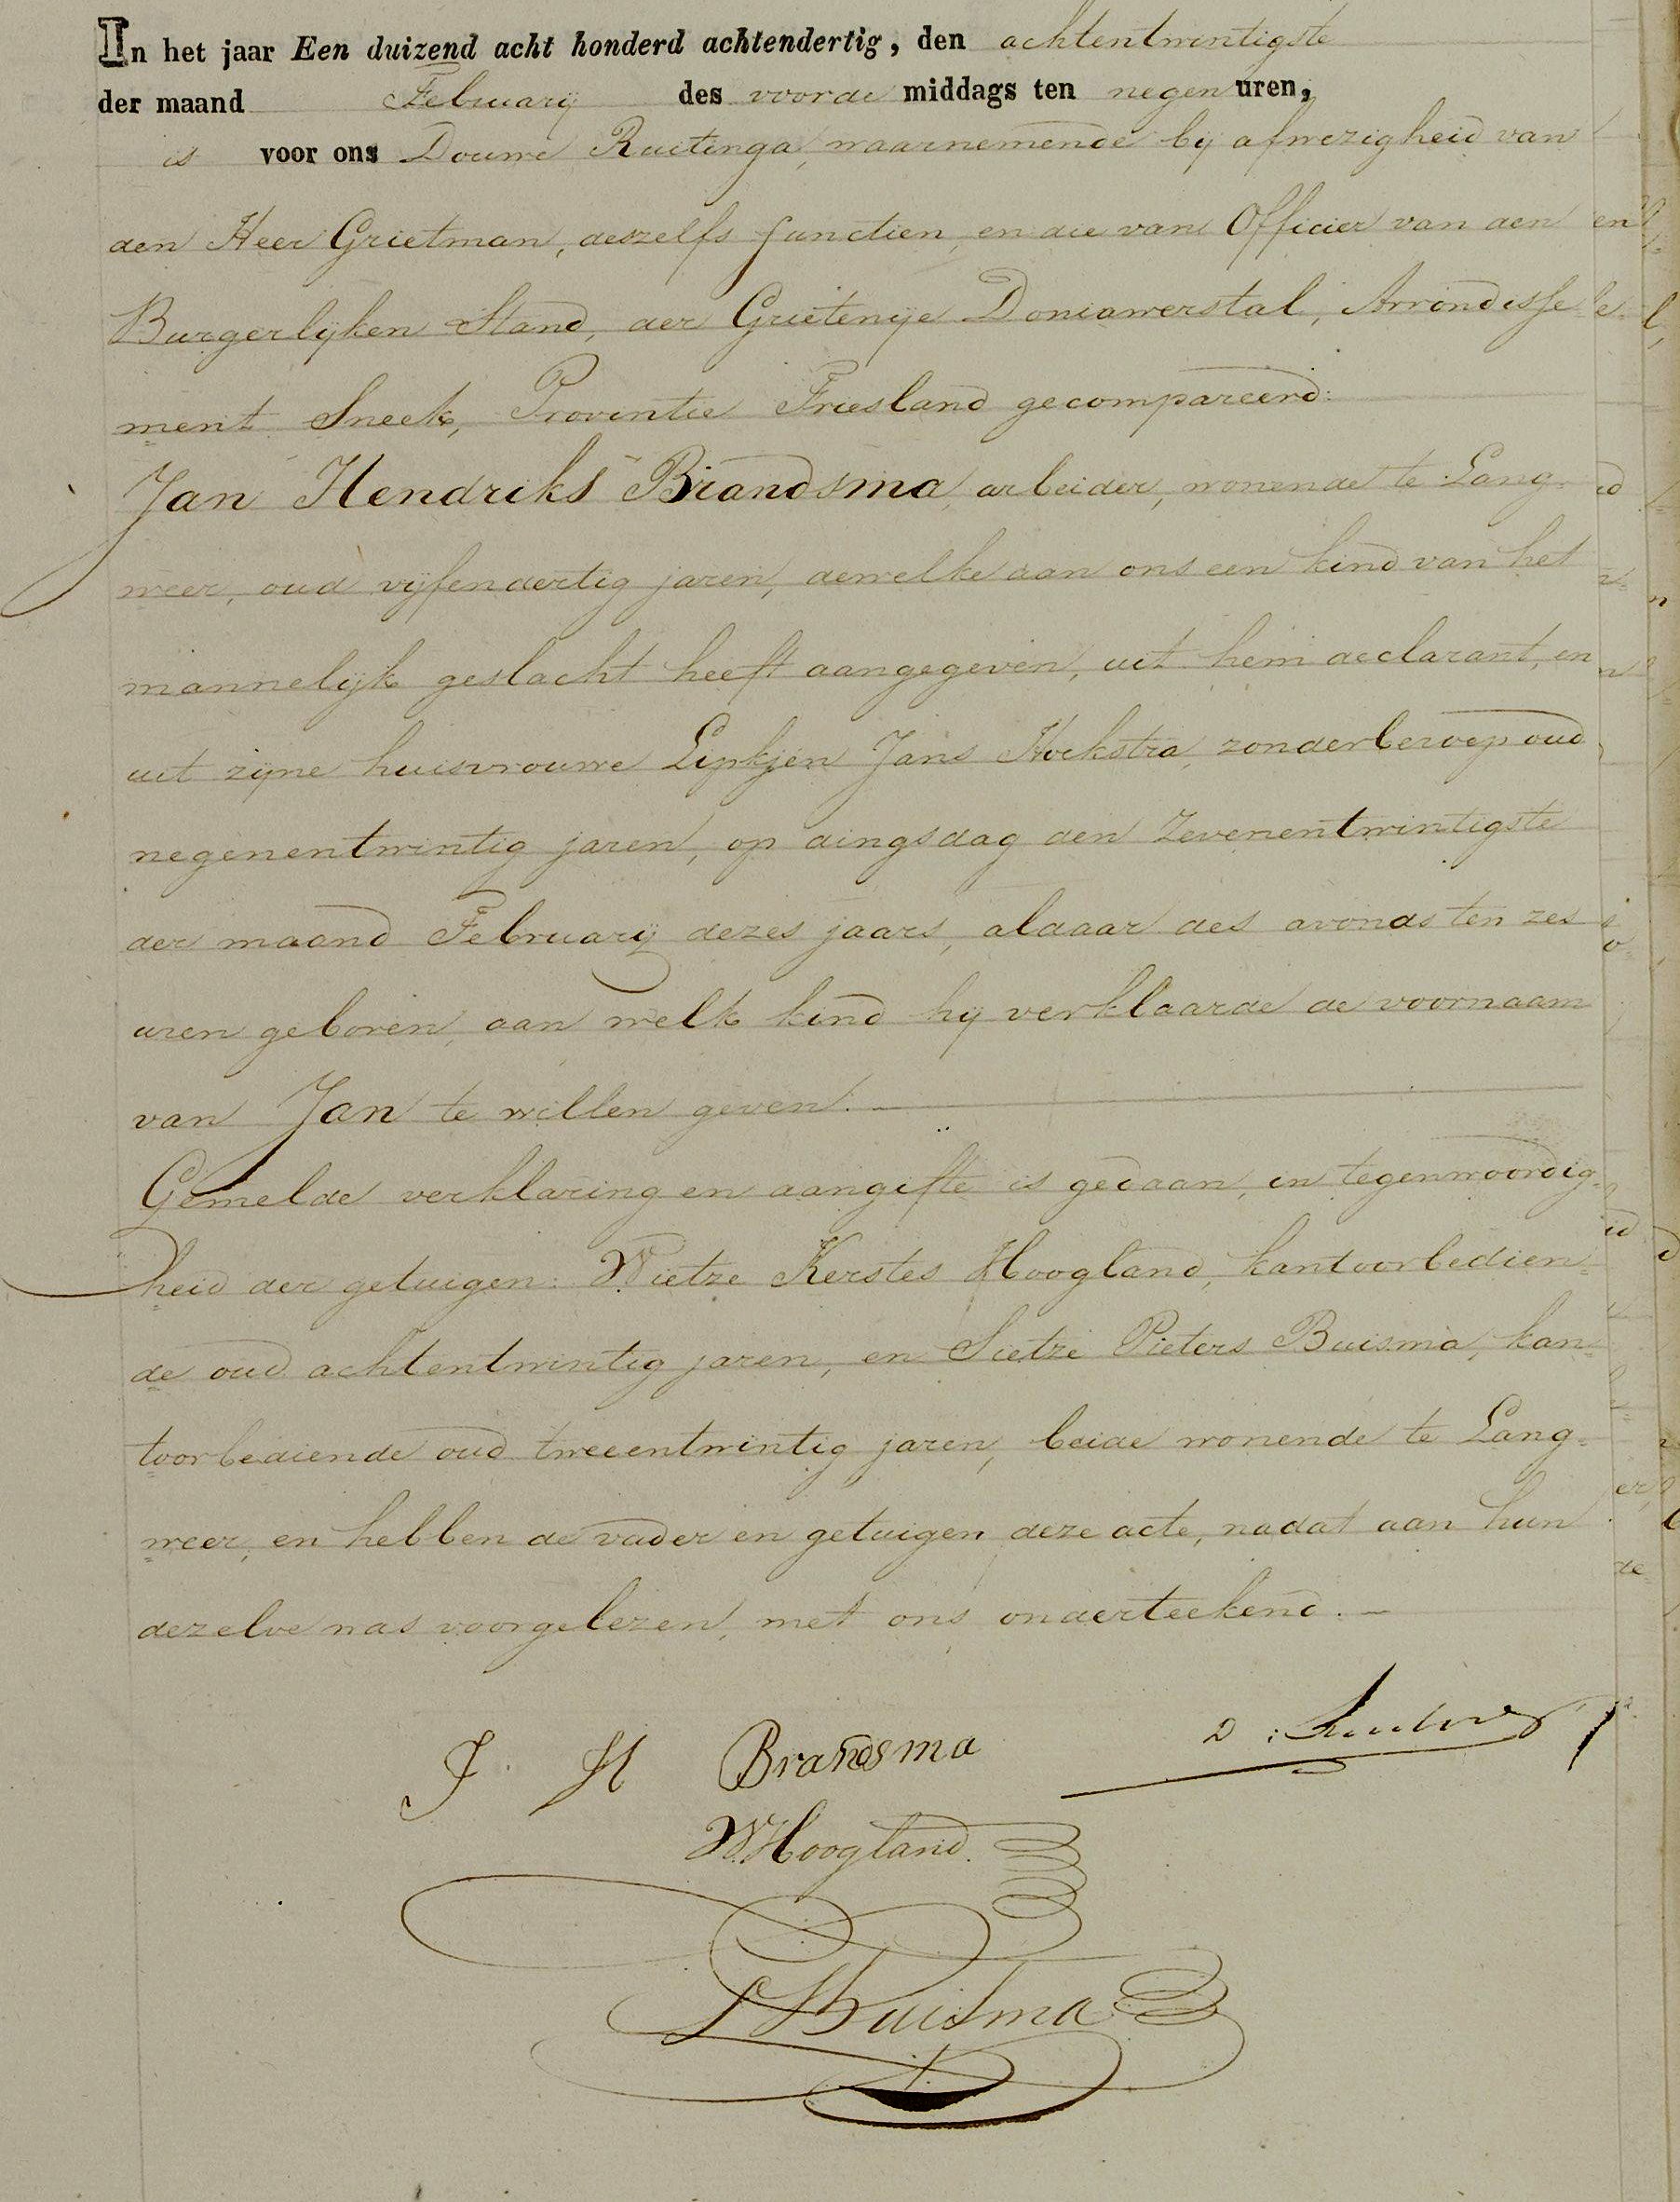 In het jaar Een duizend acht honderd achtendertig, den achtentwintigste
der maand Februarij des voorde middags ten negen uren,
is voor ons Douwe Ruitinga, waarnemende bij afwezigheid van
den Heer Grietman, deszelfs functien, en die van Officier van den
Burgerlijken Stand, der Grietenije Doniawerstal, Arrondisse
ment Sneek, Provintie Friesland gecompareerd:
Jan Hendriks Brandsma, arbeider, wonende te Lang-
weer, oud vijfendertig jaren, dewelke aan ons een kind van het
mannelijk geslacht heeft aangegeven, uit hem declarant, en
uit zijne huisvrouwe Lipkjen Jans Hoekstra, zonder beroep oud
negenentwintig jaren, op dingsdag den Zevenentwintigste
der maand Februarij dezes jaars, aldaar des avonds ten zes
uren geboren, aan welk kind hij verklaarde de voornaam
van Jan te willen geven.
Gemelde verklaring en aangifte is gedaan, in tegenwoordig-
heid der getuigen: Wietze Kerstes Hoogland, kantoorbedien-
de oud achtentwintig jaren, en Sietze Pieters Buisma, kan-
toorbediende oud tweeentwintig jaren, beide wonende te Lang-
weer, en hebben de vader en getuigen deze acte, nadat aan hun
dezelve was voorgelezen, met ons onderteekend.
J H Brandsma
D:
W Hoogland.
S Buisma